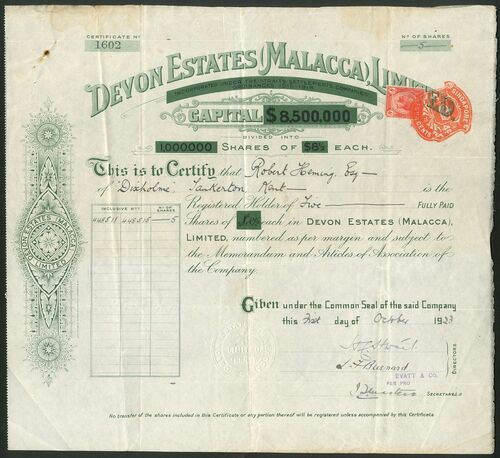 CERTIFICATE No
1602
No OF SHARES
5
DEVON ESTATES (MALACCA), LIMITED
INCORPORATED UNDER THE STRAITS SETTLEMENTS COMPANIES
CAPITAL $8,500,000
DIVIDED INTO
1,000000 SHARES OF $8½ EACH.
This is to Certify that Robert Heming Esq
of "Dixholme" Tankerton Kent is the
Registered Holder of Five FULLY PAID
Shares of each in DEVON ESTATES (MALACCA),
LIMITED, numbered as per margin and subject to
the Memorandum and Articles of Association of
the Company.
INCLUSIVE Nos No OF SHARES
448511 448515 5
DEVON ESTATES (MALACCA) LIMITED
SINGAPORE
Given under the Common Seal of the said Company
this First day of October 1923
DIRECTORS
EVATT & CO.
PER PRO
SECRETARIES
No transfer of the shares included in this Certificate or any portion thereof will be registered unless accompanied by this Certificate